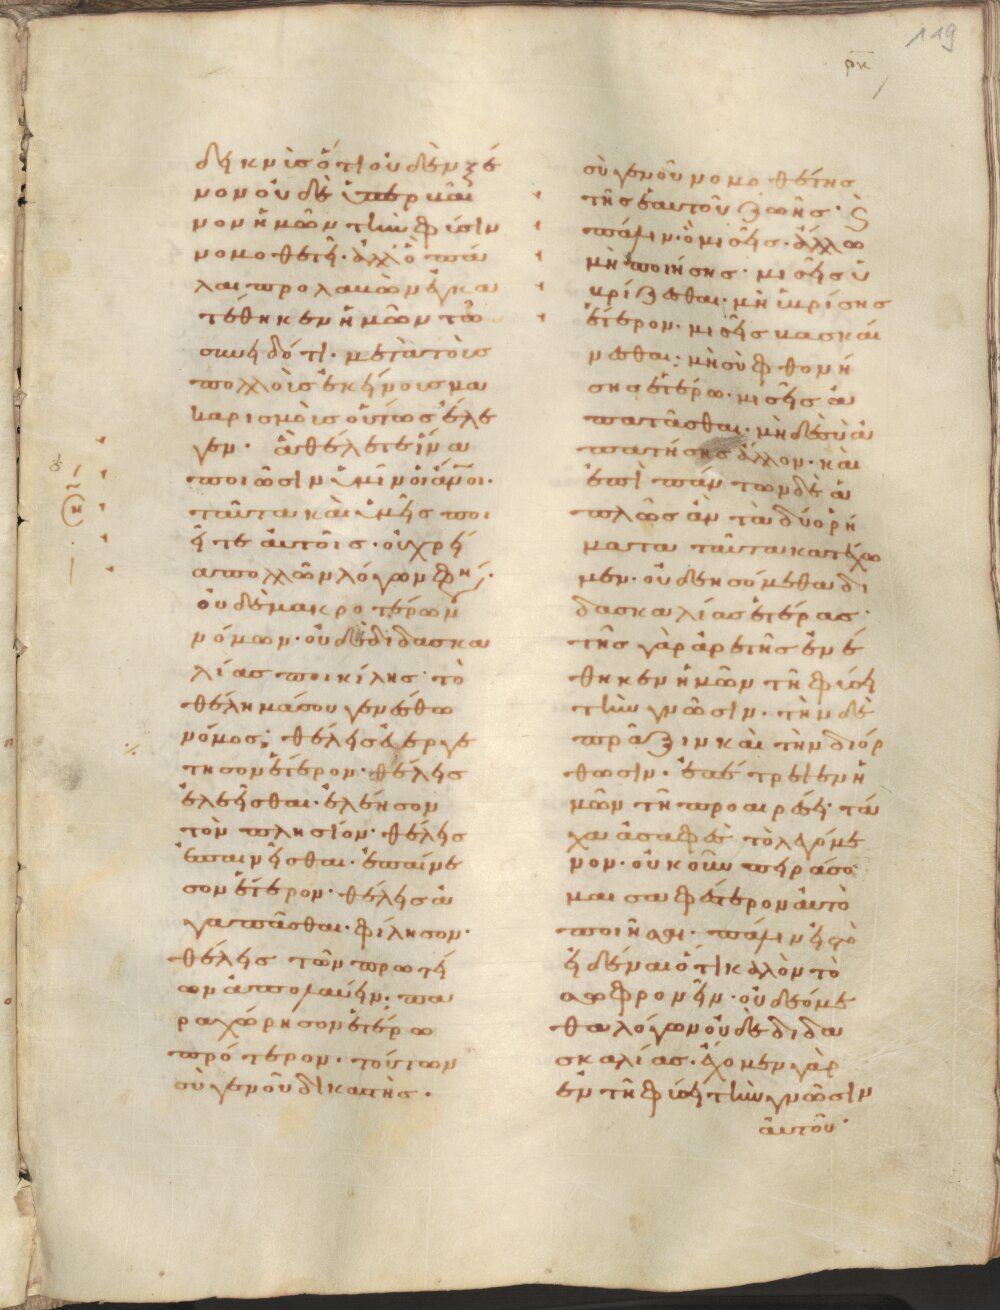 119
ρκ
δείκνυσ ὅτι οὐδὲν ξέ
νον οὐδὲ ὑπερβαῖ
νον ἡμῶν τὴν φύσιν
νομοθετεῖ· ἀλλ' ὁ πά
λαι προλαβὼν ἐγκα
τέθηκεν ἡμῶν τῶ
συνειδότι· μετὰ τοὺσ
πολλοὺσ ἐκείνουσ μα
καρισμοὺσ οὕτωσ ἔλε
γεν· ἃ θέλετε ἵνα
ποιῶσιν ὑμῖν οἱ ἄνοι·
ταῦτα καὶ ὑμεῖς ποι
εῖτε αὐτοῖσ· οὐ χρεί
α πολλῶν λόγων φησί·
οὐδὲ μακροτέρων
νόμων· οὐδὲ διδασκα
λίασ ποικίλησ· τὸ
θέλημά σου γενέσθω
νόμοσ· θέλησ εὐεργε
τησον ἕτερον· θέλησ
ἐλεεῖσθαι· ἐλέησον
τὸν πλησίον· θέλησ
ἐπαινεῖσθαι· ἐπαίνε
σον ἕτερον· θέλησ ἀ
γαπᾶσθαι· φίλησον·
θέλησ τῶν πρωτεί
ων ἀπολαύειν· πα
ραχώρησον ἑτέρω
πρότερον· τούτων
σὺ γενοῦ δικαστὴσ·
σὺ γενοῦ νομοθέτησ
τῆσ ἑαυτοῦ ζωῆσ· καὶ
πάλιν· ὃ μισεῖσ· ἄλλω
μὴ ποιήσησ· μισεῖσ ὑ
βρίζεσθαι· μὴ ὑβρίσησ
ἕτερον· μισεῖσ βασκαί
νεσθαι· μὴ σὺ φθονή
σησ ἑτέρω· μισεῖσ ἀ
πατᾶσθαι· μὴ δὲ σὺ ἀ
πατήσησ ἄλλον· καὶ
ἐπὶ πάντων δὲ ἁ
πλῶσ ἂν τὰ δύο ῥή
ματα ταῦτα κατέχω
μεν· οὐ δεησόμεθα δι
δασκαλίασ ἑτέρασ·
τῆσ γὰρ ἀρετῆσ ἐνέ
θηκεν ἡμῶν τῆ φύσει
τὴν γνῶσιν· τὴν δὲ
πρᾶξιν καὶ τὴν διόρ
θωσιν· ἐπέτρεψεν ἡ
μῶν τῆ προαιρέσει· τά
χα ἀσαφὲσ τὸ λεγόμε
νον· οὐκοῦν πειράσο
μαι σαφέστερον αὐτὸ
ποιῆσαι· πάλιν εἰσ τὸ
εἰδέναι ὅτι καλὸν τὸ
σωφρονεῖν· οὐ δεόμε
θα λόγων οὐδὲ διδα
σκαλίασ· ἔχομεν γὰρ
ἐν τῆ φύσει τὴν γνῶσιν
αὐτοῦ·